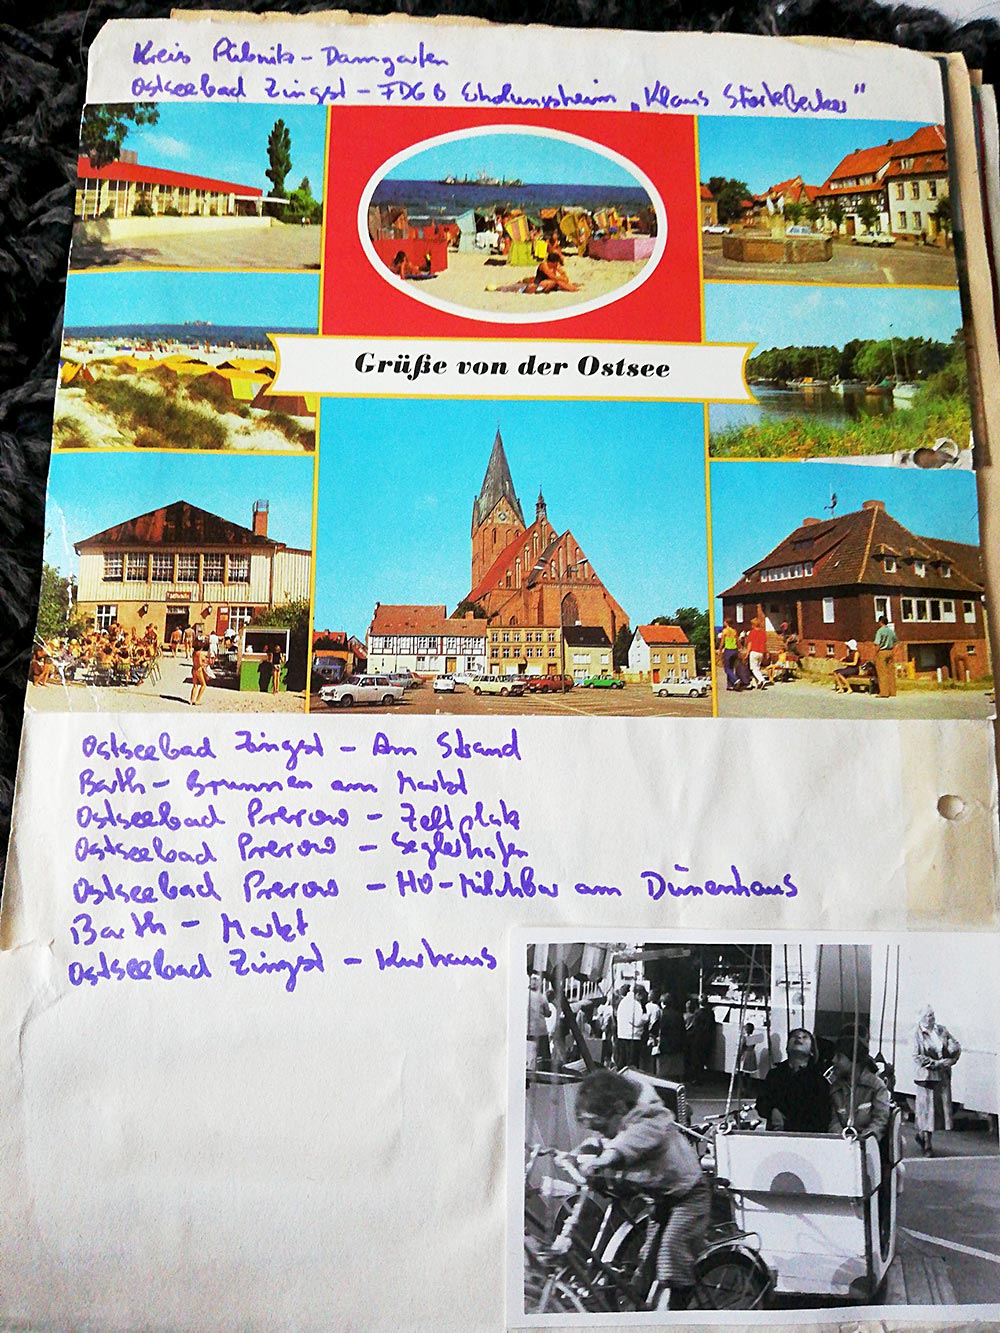 Kreis Ribnitz-Damgarten
Ostseebad Zingst - FDGB Erholungsheim „Klaus Störtebecker"
Grüße von der Ostsee
Ostseebad Zingst - Am Strand
Barth - Brunnen am Markt
Ostseebad Prerow - Zeltplatz
Ostseebad Prerow - Seglerhafen
Ostseebad Prerow - HO-Milchbar am Dünenhaus
Barth - Markt
Ostseebad Zingst - Kurhaus